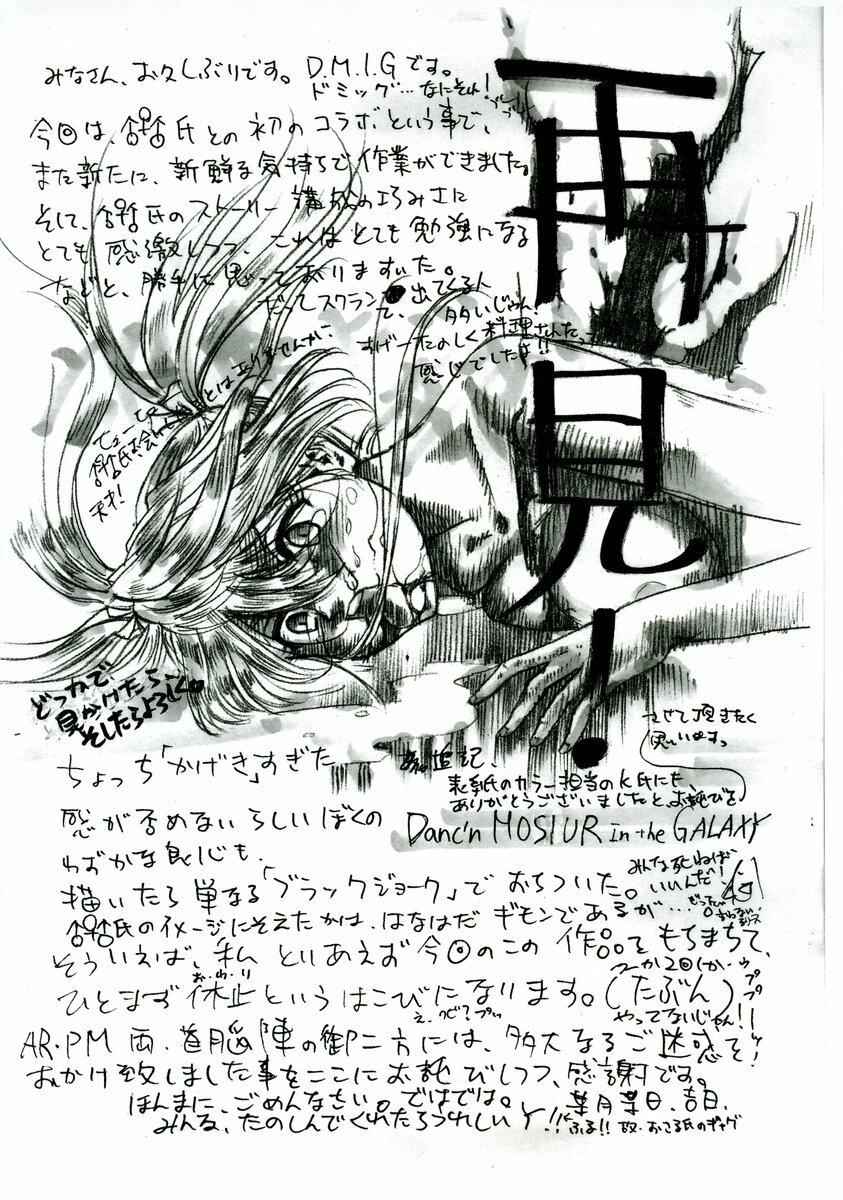 再見!
みなさん、お久しぶりです。D.M.I.Gです。
ドミッグ…なにそれ!
今回は、氏との初のコラボという事で、
また新たに、新鮮な気持ちで作業ができました。
そして、氏のストーリー構成の巧みさに
とても感激しつつ、これはとても勉強になる
などと、勝手に思っておりますいた。
だってスクラン 出てくる人
て、多いじゃん!
すげーたのしく料理されたって
感じでしたよ!!
天才!
どっかで
見かけたら、
そしたらよろしく。
ちょっち「かげき」すぎた
感が否めないらしいぼくの
わずかな良心も、
描いたら単なる「ブラックジョーク」でおちついた。
氏のイメージにそえたかは、はなはだギモンであるが…
そういえば、私 といあえず今回のこの作品をもちまちて、
お・わ・り
ひとまず休止というはこびになります。(たぶん)
やってないじゃん!!
AR・PM両・首脳陣の御二方には、多大なるご迷惑を
おかけ致しました事をここにお詫びしつつ、感謝です。
ほんまに、ごめんなさい。ではでは。
みんな、たのしんでくれたらうれしいY!!
葉月某日、吉日、
追記、
表紙のカラー担当のK氏にも、
ありがとうございましたと、お詫びを
させて頂きたく
思いいますっ
Danc'n MOSIUR in the GALAXY
みんな死ねば
いいんだ!